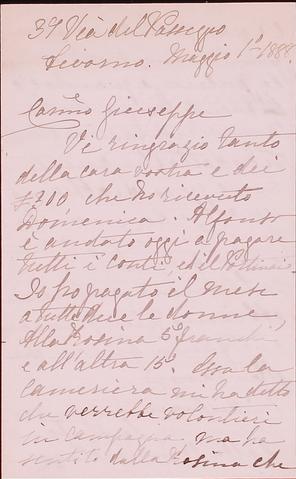 37 Via del Passeggio
Livorno. Maggio 1º 1888.
Carissimo Giuseppe
Vi ringrazio tanto
della cara vostra e dei
£200 che ho ricevuto
Domenica. Alfonso
è andato oggi a pagare
tutti i conti, ed il
Io ho pagato il mese
a tutte due le donne,
Alla Rosina 5 franchi
e all'altra 15. Essa la
cameriera mi ha detto
che verrebbe volontieri
in campagna, ma ha
sentito dalla Rosina che